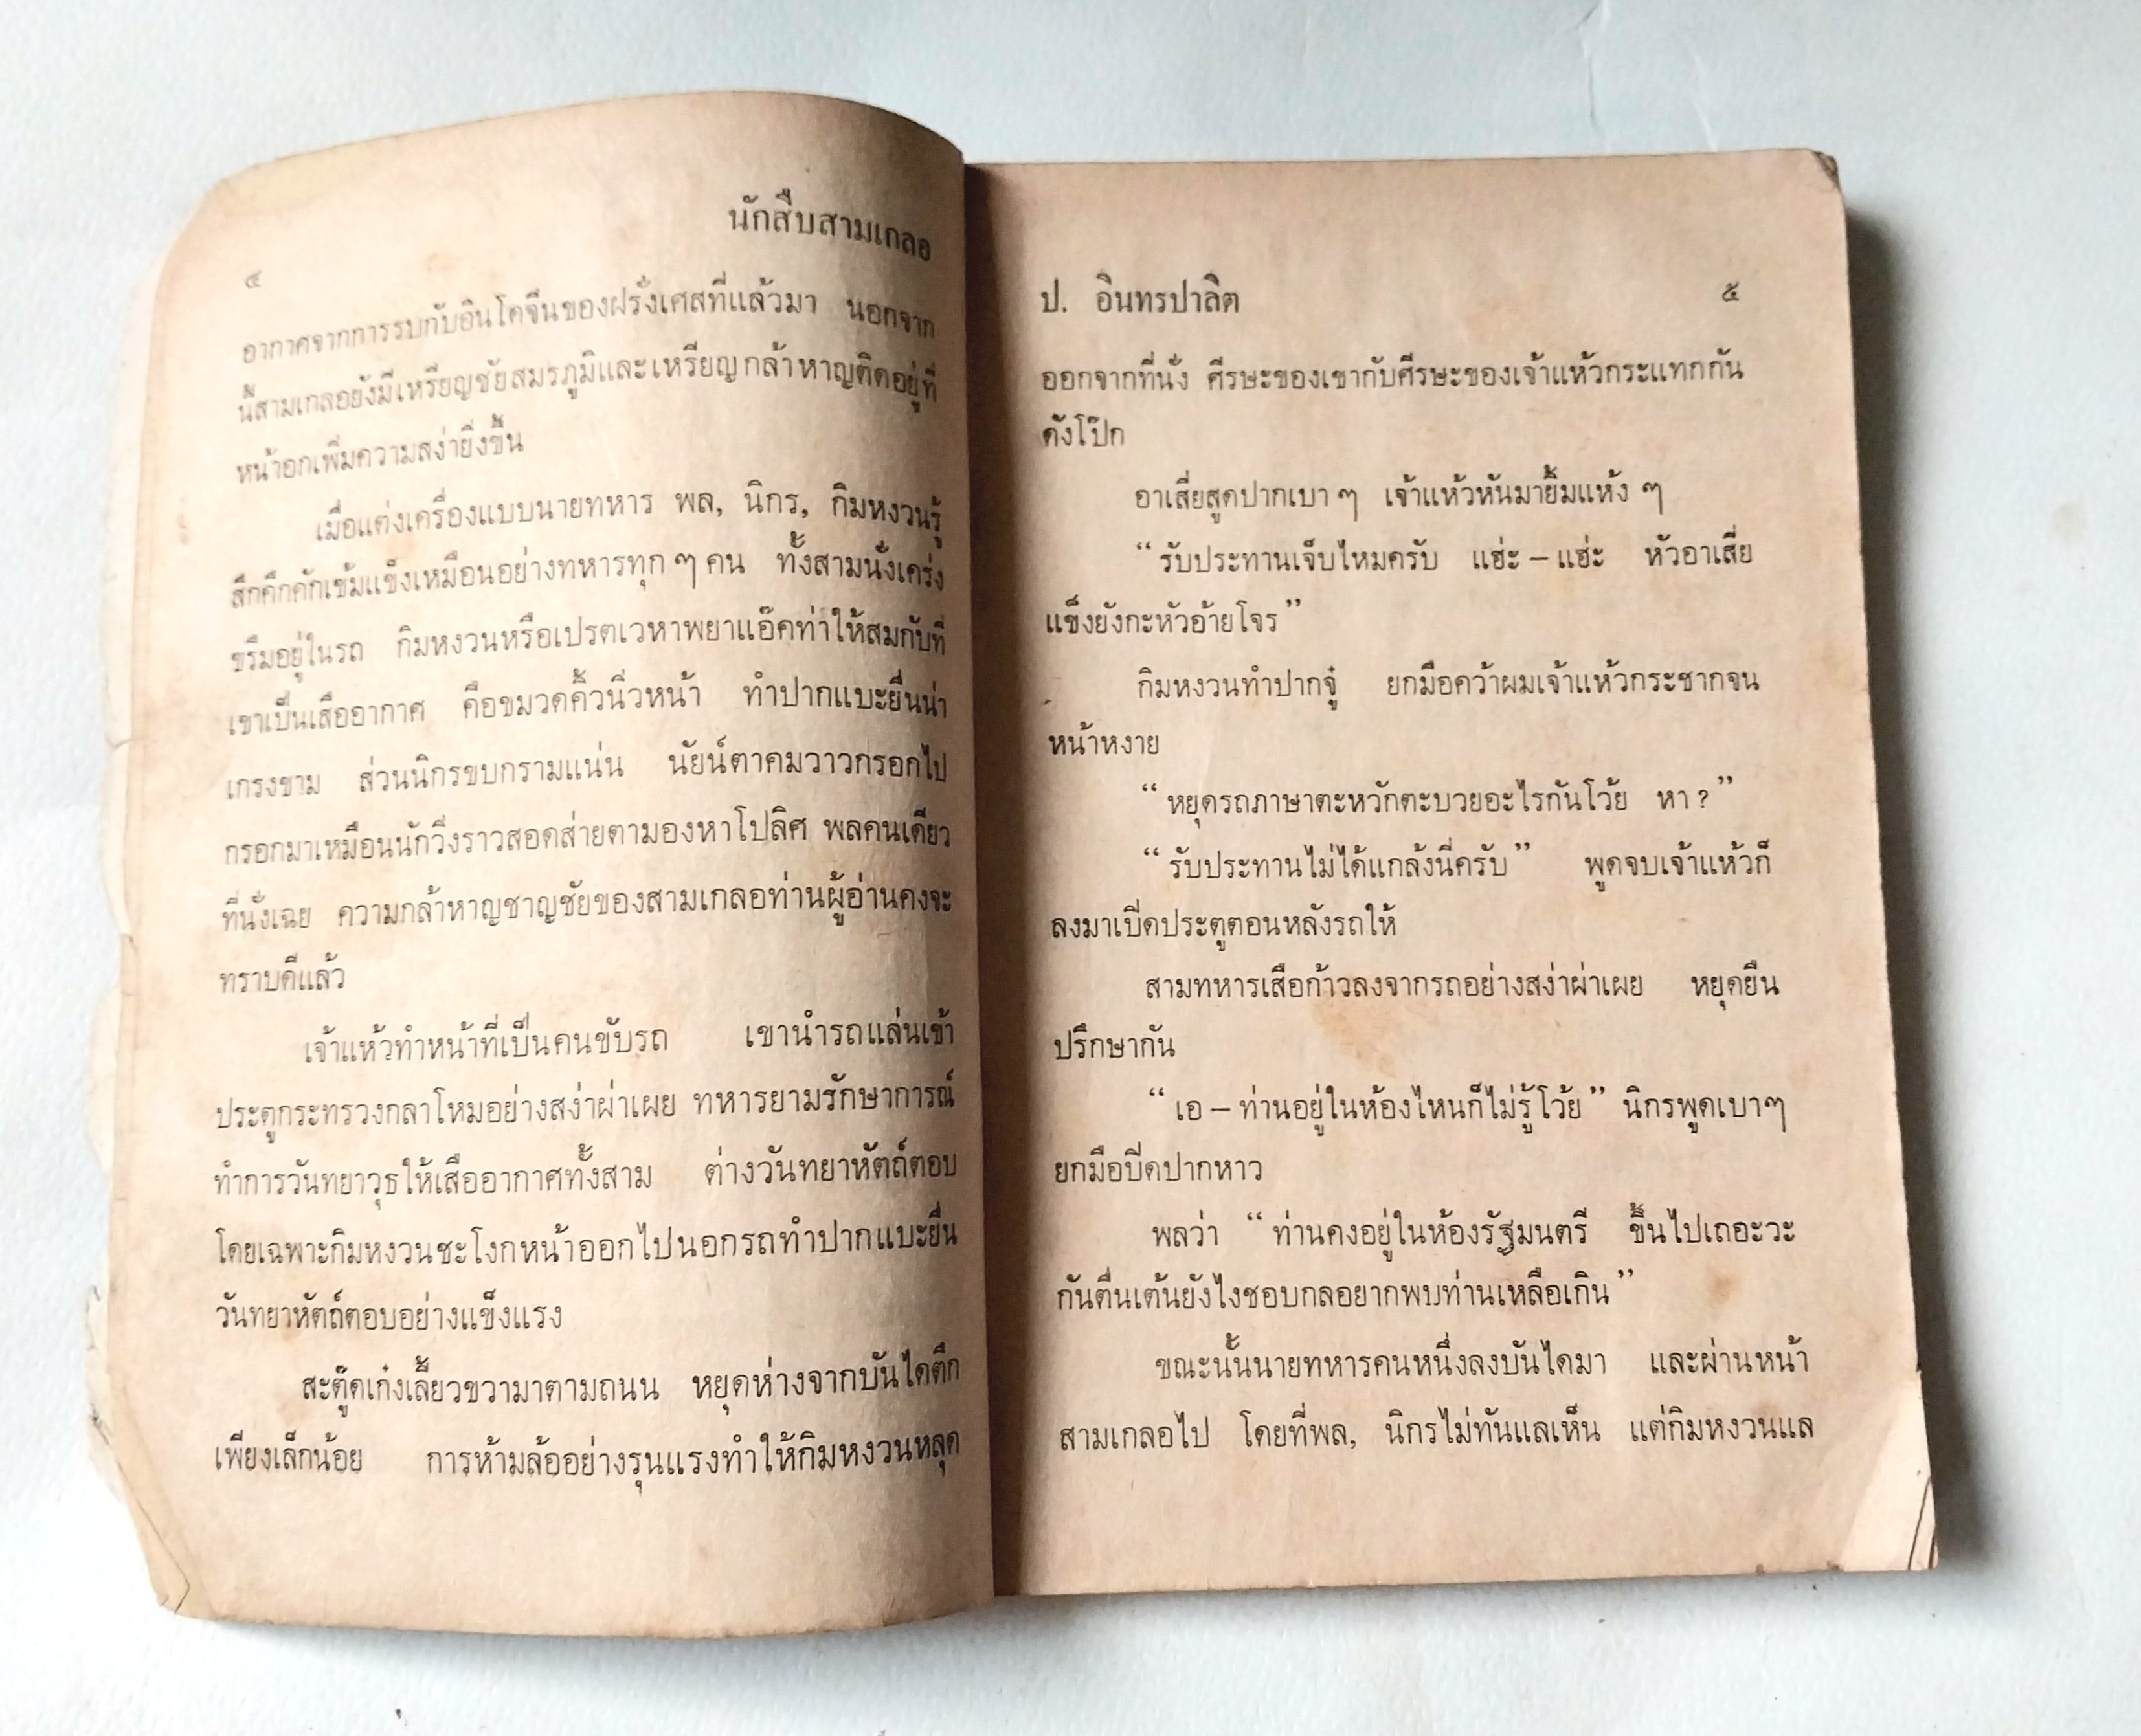 นักสืบสามเกลอ
๔
อากาศจากการรบกับอินโดจีนของฝรั่งเศสที่แล้วมา นอกจาก
นี้สามเกลอยังมีเหรียญชัยสมรภูมิและเหรียญกล้าหาญติดอยู่ที่
หน้าอกเพิ่มความสง่ายิ่งขึ้น
เมื่อแต่งเครื่องแบบนายทหาร พล, นิกร, กิมหงวนรู้
สึกคึกคักเข้มแข็งเหมือนอย่างทหารทุก ๆ คน ทั้งสามนั่งเคร่ง
ขรึมอยู่ในรถ กิมหงวนหรือเปรตเวหาพยาแอ๊คท่าให้สมกับที่
เขาเป็นเสืออากาศ คือขมวดคิ้วนิ่วหน้า ทำปากแบะยื่นน่า
เกรงขาม ส่วนนิกรขบกรามแน่น นัยน์ตาคมวาวกรอกไป
กรอกมาเหมือนนักวิ่งราวสอดส่ายตามองหาโปลิศ พลคนเดียว
ที่นั่งเฉย ความกล้าหาญชาญชัยของสามเกลอท่านผู้อ่านคงจะ
ทราบดีแล้ว
เจ้าแห้วทำหน้าที่เป็นคนขับรถ เขานำรถแล่นเข้า
ประตูกระทรวงกลาโหมอย่างสง่าผ่าเผย ทหารยามรักษาการณ์
ทำการวันทยาวุธให้เสืออากาศทั้งสาม ต่างวันทยาหัตถ์ตอบ
โดยเฉพาะกิมหงวนชะโงกหน้าออกไปนอกรถทำปากแบะยื่น
วันทยาหัตถ์ตอบอย่างแข็งแรง
สะตู๊ดเก๋งเลี้ยวขวามาตามถนน หยุดห่างจากบันไดตึก
เพียงเล็กน้อย การห้ามล้ออย่างรุนแรงทำให้กิมหงวนหลุด
ป. อินทรปาลิต
๕
ออกจากที่นั่ง ศีรษะของเขากับศีรษะของเจ้าแห้วกระแทกกัน
ดังโป๊ก
อาเสี่ยสูดปากเบา ๆ เจ้าแห้วหันมายิ้มแห้ง ๆ
“ รับประทานเจ็บไหมครับ แฮ่ะ – แฮ่ะ หัวอาเสี่ย
แข็งยังกะหัวอ้ายโจร ”
กิมหงวนทำปากจู๋ ยกมือคว้าผมเจ้าแห้วกระชากจน
หน้าหงาย
“ หยุดรถภาษาตะหวักตะบวยอะไรกันโว้ย หา ? ”
“ รับประทานไม่ได้แกล้งนี่ครับ ” พูดจบเจ้าแห้วก็
ลงมาเปิดประตูตอนหลังรถให้
สามทหารเสือก้าวลงจากรถอย่างสง่าผ่าเผย หยุดยืน
ปรึกษากัน
“ เอ – ท่านอยู่ในห้องไหนก็ไม่รู้โว้ย ” นิกรพูดเบาๆ
ยกมือปิดปากหาว
พลว่า “ ท่านคงอยู่ในห้องรัฐมนตรี ขึ้นไปเถอะวะ
กันตื่นเต้นยังไงชอบกลอยากพบท่านเหลือเกิน ”
ขณะนั้นนายทหารคนหนึ่งลงบันไดมา และผ่านหน้า
สามเกลอไป โดยที่พล, นิกรไม่ทันแลเห็น แต่กิมหงวนแล